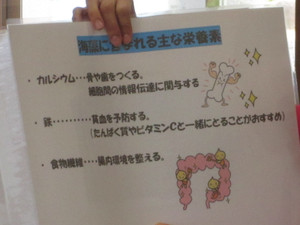 海藻に含まれる主な栄養素
・カルシウム…骨や歯をつくる。
細胞間の情報伝達に関与する
・鉄………貧血を予防する。
(たんぱく質やビタミンCと一緒にとることがおすすめ)
・食物繊維…腸内環境を整える。